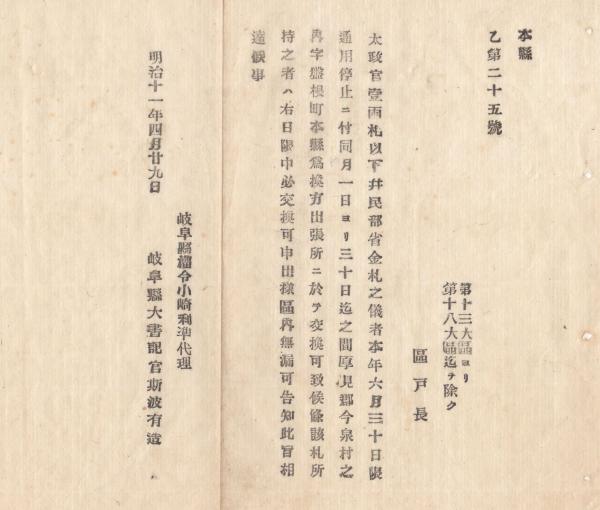 本縣
乙第二十五號
第十三大區ヨリ
第十八大區迄ヲ除ク
區戸長
太政官壹兩札以下幷民部省金札之儀者本年六月三十日限
通用停止ニ付同月一日ヨリ三十日迄之間厚見郡今泉村之
內字盤根町本縣爲換方出張所ニ於テ交換可致候條該札所
持之者ハ右日限中必交換可申出樣區內無漏可告知此旨相
達候事
明治十一年四月廿九日
岐阜縣權令小崎利準代理
岐阜縣大書記官斯波有造